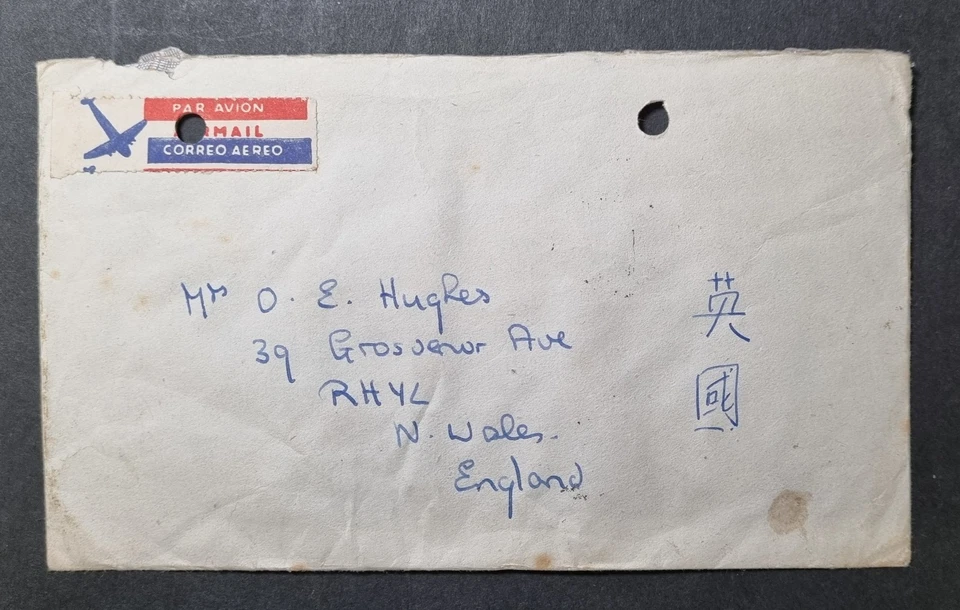 PAR AVION
AIRMAIL
CORREO AEREO
Mrs O. E. Hughes
39 Grosvenor Ave
RHYL
N. Wales.
England
英國